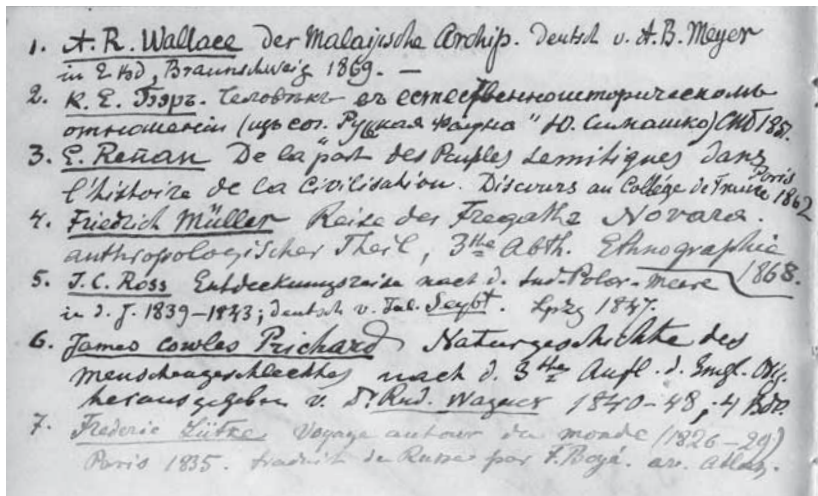 1. A. R. Wallace der Malaiische Archip. Deutsch v. A. B. Meyer
in 2 Bd, Braunschweig 1869. —
2. К. Е. Бэръ. Человѣкъ въ естественноисторическомъ
отношеніи (изъ соч. Русская Фауна" Ю. Симашко) СПБ 1851.
3. E. Renan De la part des Peuples semitiques dans
l'histoire de la Civilisation. Discours au Collége de France Paris 1862
4. Friedrich Müller Reise der Fregatte Novara.
anthropologischer Theil, 3the Abth. Ethnographie
1868.
5. J. C. Ross Entdeckungsreise nach d. Süd-Polar-Meere
in d. J. 1839–1843; deutsch v. Jul. Seybt. Lpzg 1847.
6. James Cowles Prichard Naturgeschichte des
Menschengeschlechtes nach d. 3the Aufl. d. Engl. Orig.
herausgegeben v. Dr Rud. Wagner 1840–48, 4 Bde.
7. Frederic Lütke Voyage autour du monde (1826–29)
Paris 1835. traduit du Russe par F. Boyé. av. Atlas.